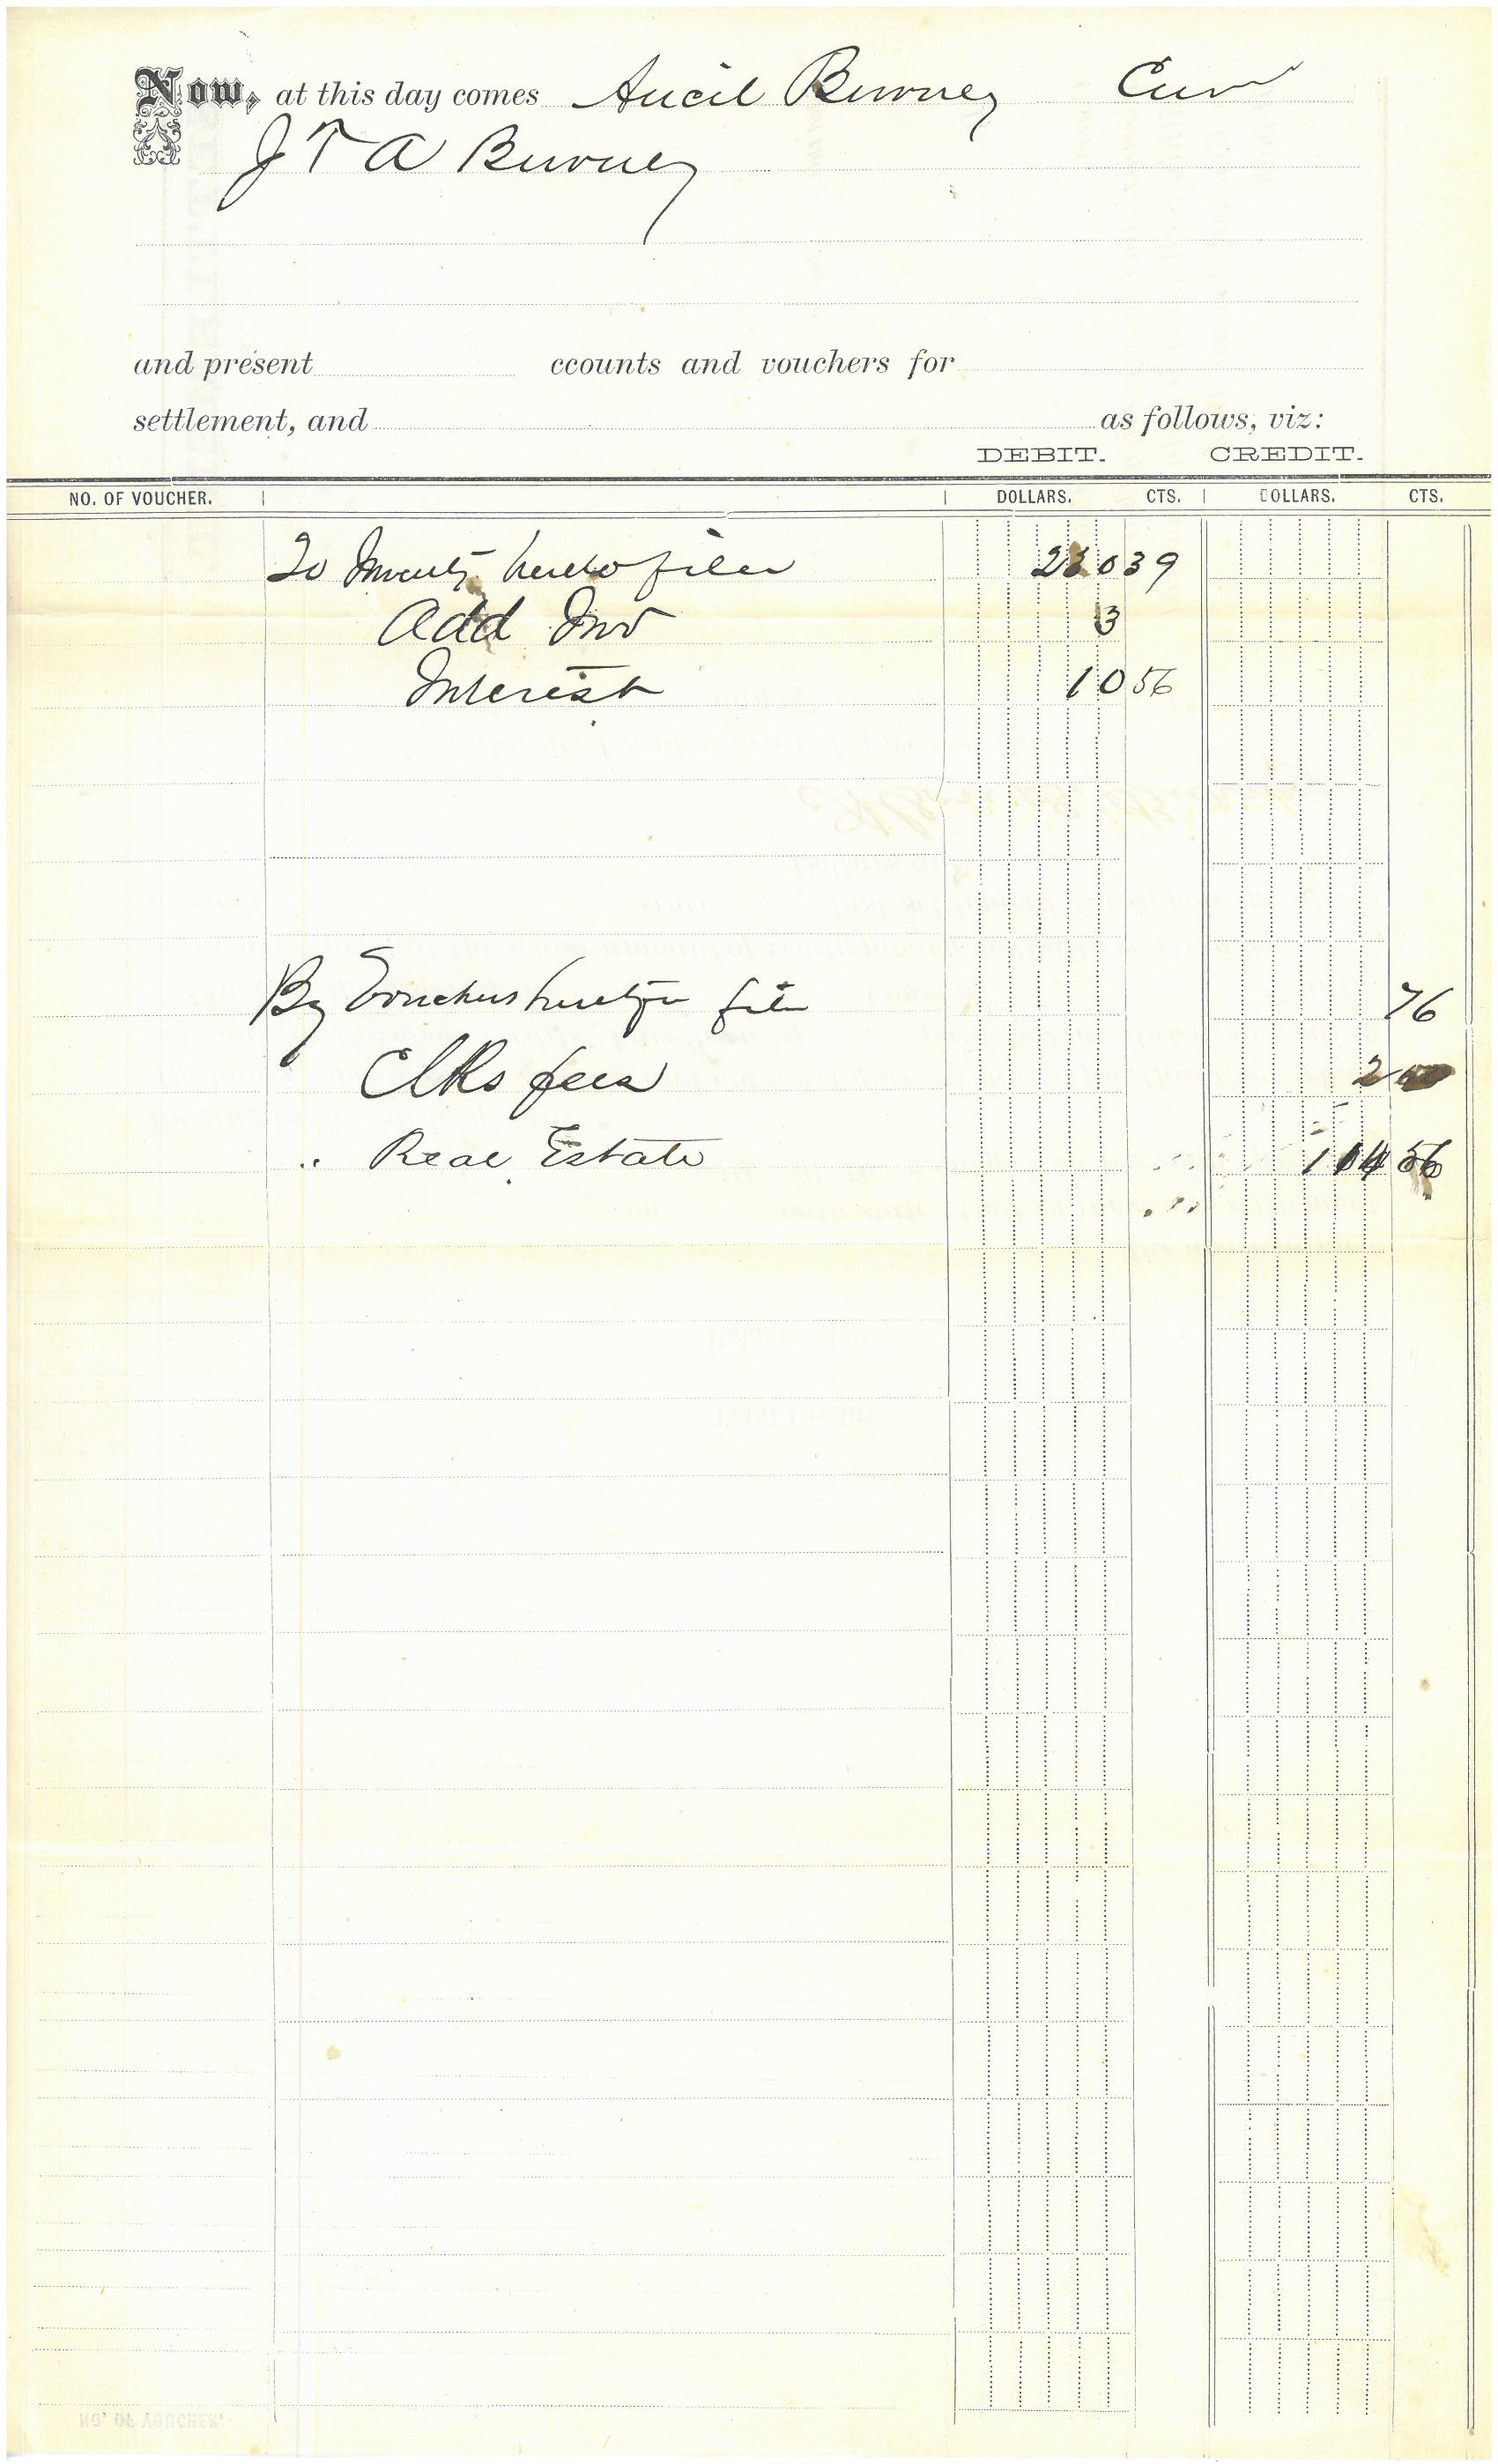 Now, at this day comes Ancil Burney Cur
J T A Burney
and present ccounts and vouchers for
settlement, and as follows, viz:
DEBIT. CREDIT.
NO. OF VOUCHER. DOLLARS. CTS. DOLLARS. CTS.
To Inventy hereto filed 39
Add Inv 3
Interest 10 56
By Vouchers herewith filed 76
Clks fees 2
" Real Estate
NO. OF VOUCHER.